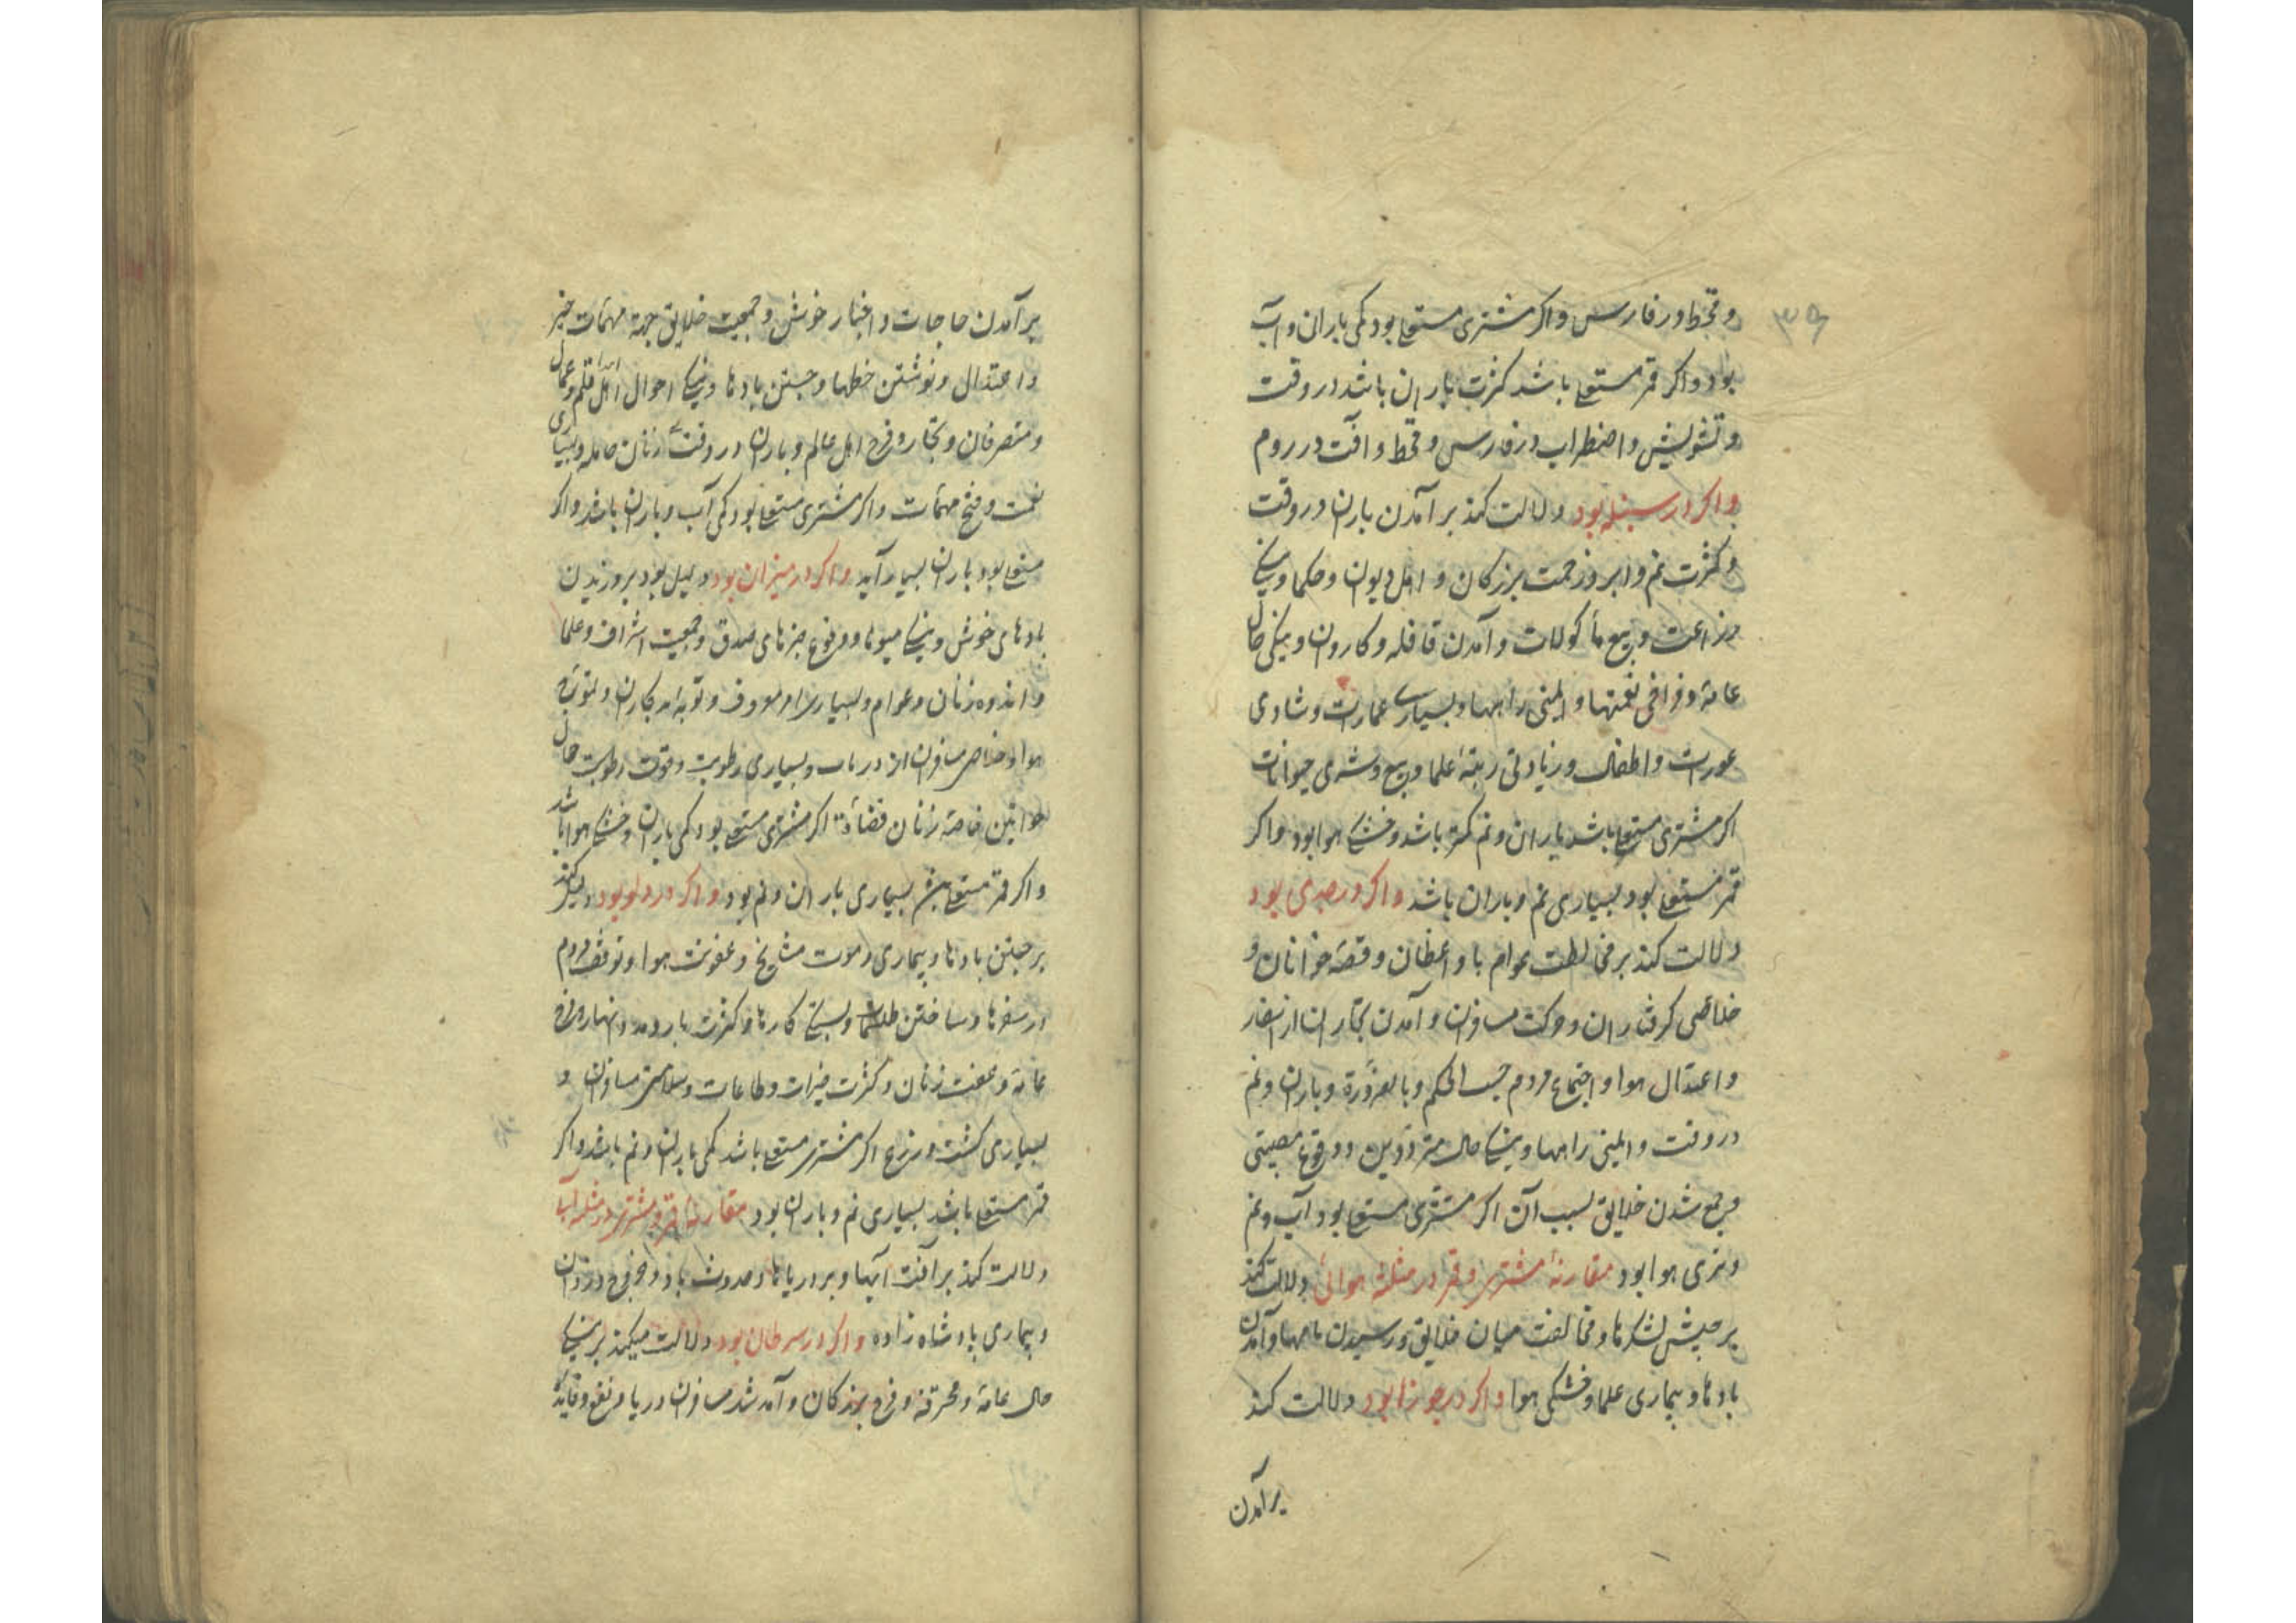 ۳۹
و قحط در فارس و اکر مشتری مستعلی بود کمی باران و آب
بود و اکر قمر مستعلی باشد کثرت باران باشد در وقت
و تشویش و اضطراب در فارس و قحط و آفت در روم
و اکر در سنبله بود دلالت کند بر آمدن باران در وقت
و کثرت نم و ابر و زحمت بزرکان و اهل دیوان و حکما و نیکی
زراعت و بیع مأکولات و آمدن قافله و کاروان و نیکی حال
عامه و فراخی نعمتها و ایمنی راهها و بسیاری عمارات و شادی
عورات و اطفال و زیادتی رتبهٔ علما و بیع و شری حیوانات
اکر مشتری مستعلی باشد باران و نم کمتر باشد و خشکی هوا بود و اکر
قمر مستعلی بود بسیاری نم و باران باشد و اکر در جدی بود
دلالت کند بر مخالطت عوام با واعظان و قصه خوانان و
خلاصی کرفتاران و حرکت مسافران و آمدن تجاران از اسفار
و اعتدال هوا و اجتماع مردم حسب الحکم و بالضرورة و باران و نم
در وقت و ایمنی راهها و نیکی حال مترددین و وقوع مصیبتی
و جمع شدن خلایق بسبب آن اکر مشتری مستعلی بود آب و نم
و تری هوا بود مقارنهٔ مشتری و قمر در مثلثهٔ هوائی دلالت کند
بر جیش لشکرها و مخالفت میان خلایق و رسیدن نامها و آمدن
بادها و بیماری علما و خشکی هوا و اکر در جوزا بود دلالت کند
برآمدن
برآمدن حاجات و اخبار خوش و جمعیت خلایق جهة مهمات خیر
و اعتدال و نوشتن خطها و جستن بادها و نیکی احوال اهل قلم و عمال
و متصرفان و تجار و فرح اهل عالم و باران در وقت زنان حامله و بسیاری
نعمت و فتح مهمات و اکر مشتری مستعلی بود کمی آب و باران باشد و اکر
مستعلی بود باران بسیار آید و اکر در میزان بود دلیل بود بر وزیدن
بادهای خوش و نیکی میوها و وقوع خبرهای صدق و جمعیت اشراف و علما
و اندوه زنان و عوام و بسیاری امر معروف و توبه بدکاران و
هوا و خلاص مسافران از دریا و بسیاری رطوبت و قوت رطوبت حال
خواتین خاصه زنان قضاة اکر مشتری مستعلی بود کمی باران و خشکی هوا باشد
و اکر قمر مستعلی باشد بسیاری باران و نم بود و اکر در دلو بود دلیل کند
بر جستن بادها و بیماری و موت مشایخ و عفونت هوا و توقف مردم
در سفرها و ساختن طلسمات و بستکی کارها و کثرت بار و مد و انهار و فرح
عامه و عفت زنان و کثرت خیرات و طاعات و سلامتی مسافران و
بسیاری کشت و زرع اکر مشتری مستعلی باشد کمی باران و نم باشد و اکر
قمر مستعلی باشد بسیاری نم و باران بود مقارنهٔ قمر و مشتری در مثلثهٔ آبی
دلالت کند بر آفت آبها و بر دریاها و حدوث باد و خروج دزدان
و بیماری پادشاه زاده و اکر در سرطان بود دلالت میکند بر نیکی
حال عامه و محترفه و فرح بزرکان و آمد شد مسافران دریا و نفع و فایده